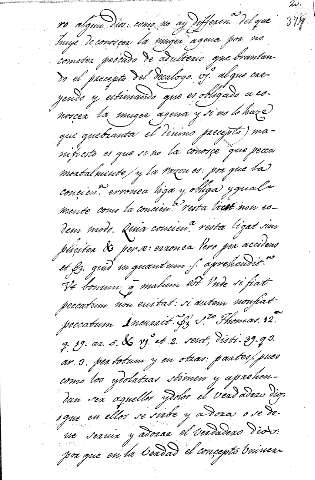 379
ro algun dios: como no ay differen.ª del que
huye de conoscer la muger agena por no
cometer pecado de adulterio que brantan-
do el precepto del Decalogo. y.º al que cre-
yendo y estimando que es obligado a co-
noscer la muger agena y si no lo haze
que quebranta el divino precepto, ma-
nifiesto es que si no la conosce que peca
mortalmente, y la razon es: porque la
concien.ª erronea liga y obliga ygual-
mente como la concien.ª resta licet non eo-
dem modo. Quia concien.ª resta ligat sim-
pliciter & per se: erronea vero per accidens
et quid in quantum apprehendit
ut bonum malum est. Unde si fiat
peccatum non euitat: si autem non fiat
peccatum Incurrit. S.to Thomas. 12.ª
q. 19. ar. 5. & 6.º et 2. sent. disti. 39. q. 3.
ar. 3. per totum y en otras partes, pues
como los ydolatras estimen y aprehen-
dan ser aquellos ydolos el verdadero dios
o que en ellos se sirbe y adora o se de-
ue seruir y adorar el verdadero dios:
por que en la verdad el concepto vniuer-